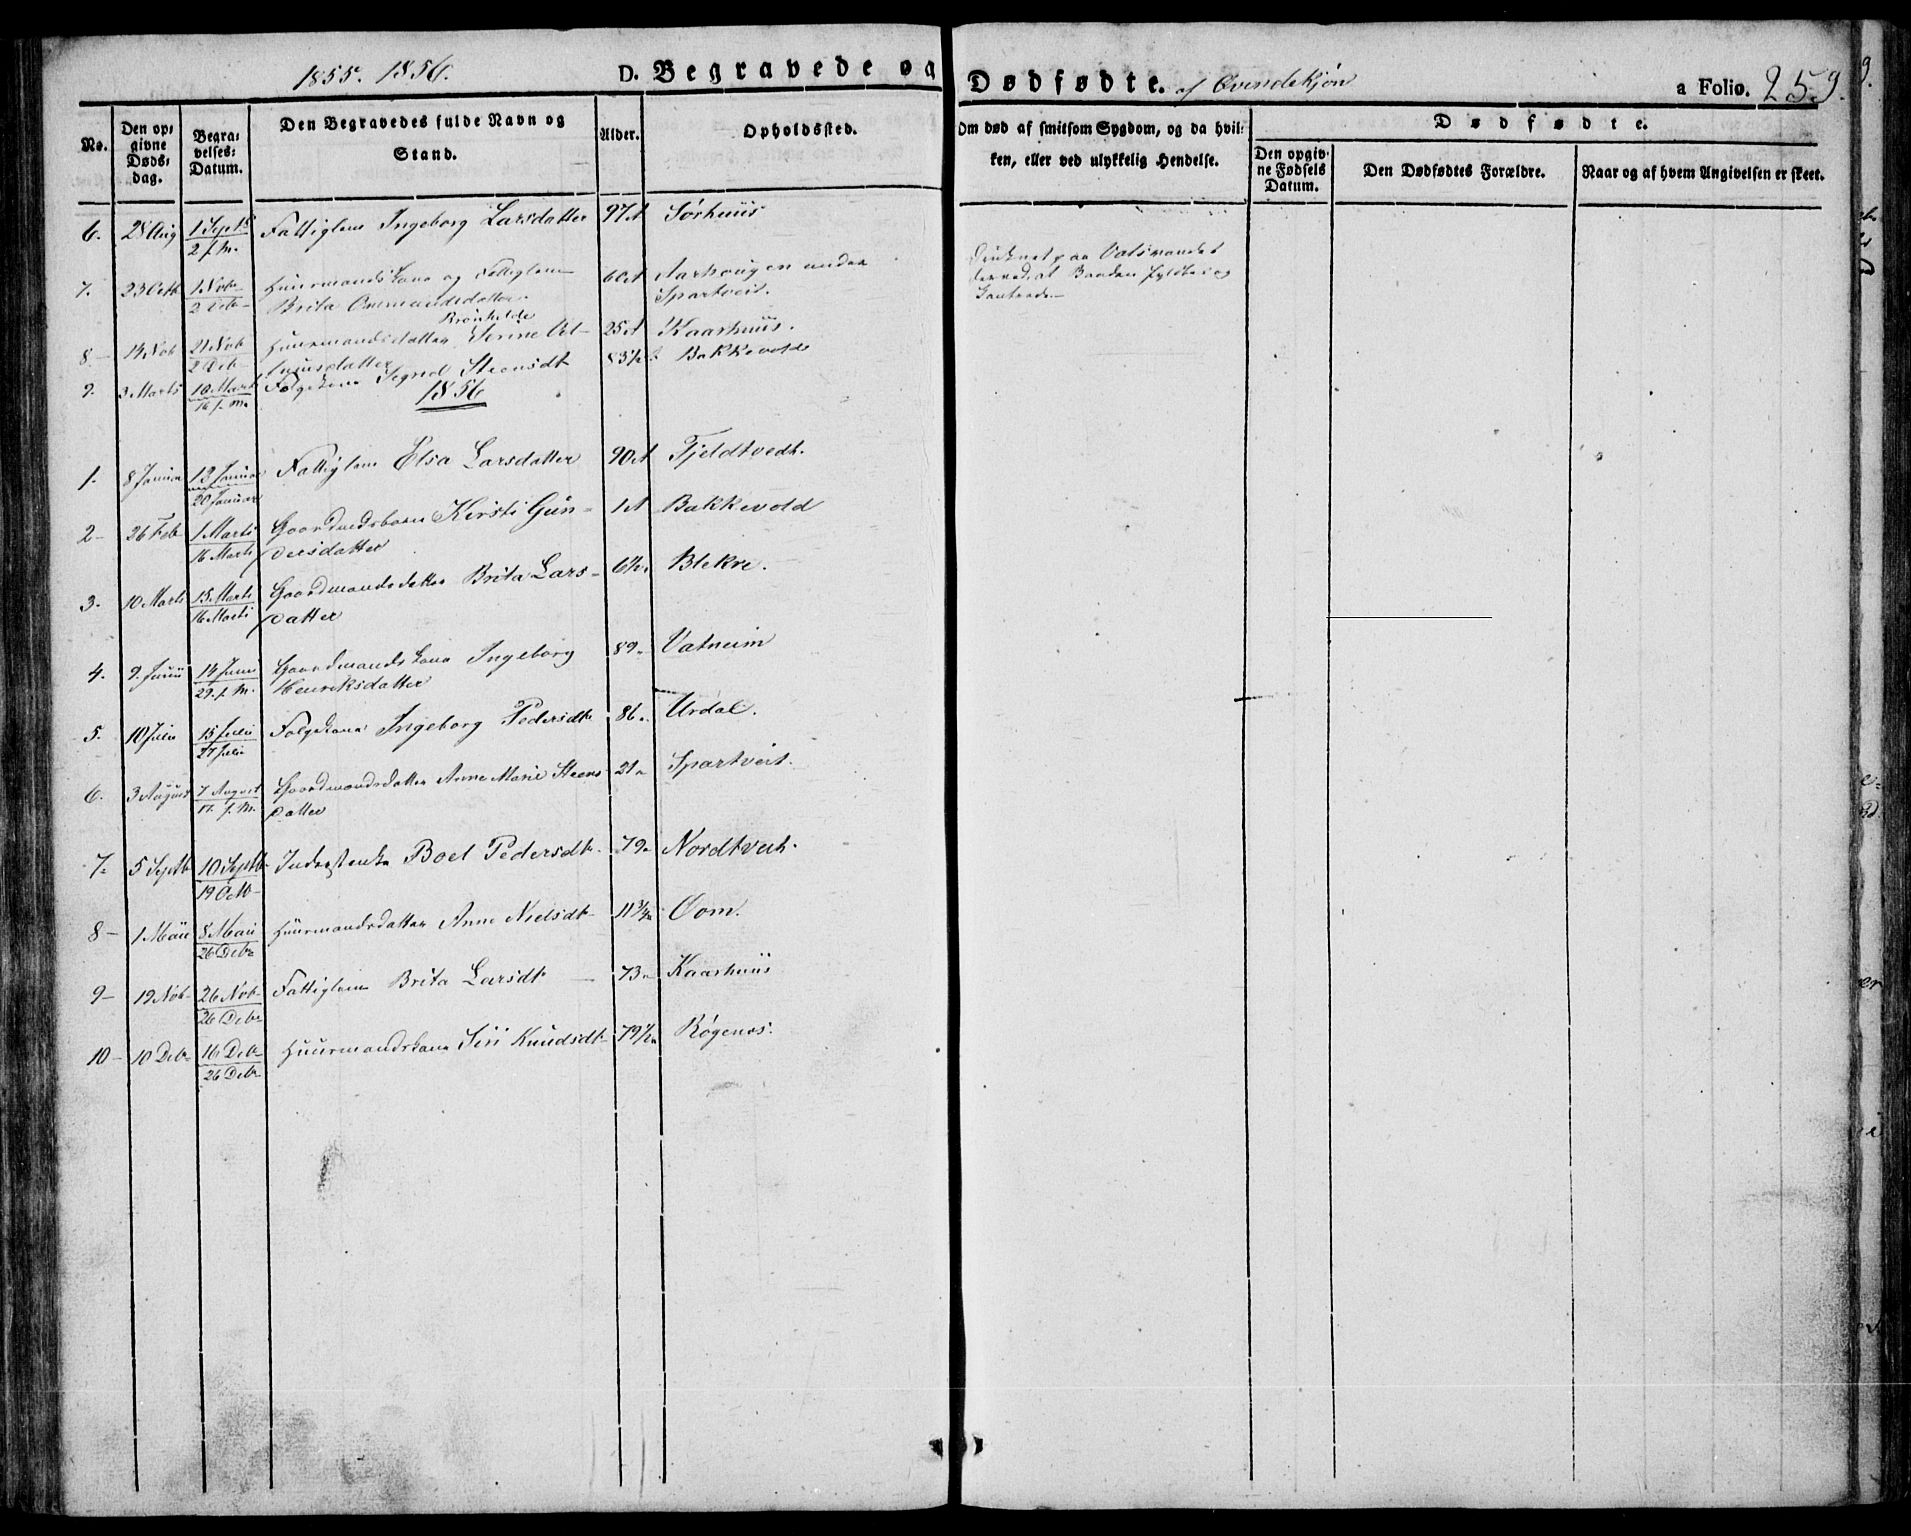 1855. 1856. D. Begravede og Dødfødte. af Qvindekjøn a Folio. 259.
No. Den opgivne Døds-dag. Begravelses-Datum. Den Begravedes fulde Navn og Stand. Alder. Opholdssted. Om død af smitsom Sygdom, og da hvilken, eller ved ulykkelig Hendelse. Dødfødte.
Den opgivne Fødsels Datum. Den Dødfødtes Forældre. Naar og af hvem Angivelsen er skeet.
6. 28 Aug 1 Septb Fattiglem Ingeborg Larsdatter 97 A Sørhuus
2 f. M.
7. 23 Octb 1 Nob- Huusmands Kona og Fattiglem 60 A Aarhougen under
2 Deb- Brita Ommundsdatter. Spartveit.
Druknet paa Vatsvandet
derved at Baaden fyldtes og
kantrede.
Brønhelde
8- 14 Nob 21 Nob Huusmandsdatter Serine 25 A Kaarhuus.
2 Deb-
9. 3 Marts 10 Marts Folgekone Segned Steensdt 83½ Bakkevold
16 f. M.
1856
1. 8 Januar 13 Januar Fattiglem Elsa Larsdatter 90 A Fjeldtvedt.
20 Januar
2- 26 Feb 1 Marts Gaardmdsbarn Kersti Gun- 1 A Bakkevold
16 Marts dersdatter
3. 10 Marts 15 Marts Gaardmandsdatter Brita Lars- 6½ Blekre.
16 Marts datter
4. 9. Junii 14 Juni Gaardmands Kona Ingeborg 89- Vatneim
29. f. M. Henreksdatter
5. 10 Julii 15 Julii Folgekone Ingeborg Pedersdt 86. Urdal.
27 Julii
6. 3 August 7 August Gaardmandsdatter Anne Marie Steens- 21- Spartveit.
17. f. M. datter
7- 5 Septb 10 Septb- Boel Pedersdt. 79- Nordtveit.
19 Octb-
8- 1 Mai 8 Mai Huusmandsdatter Anne Nielsdt- 11¾ Oom.
26 Debr
9- 19 Nob- 26 Nob- Fattiglem Brita Larsdt - 73- Kaarhuus
26 Debr
10- 10 Debr 16 Debr Huusmandskona Siri Knudsdt- 79½ Røgenes.
26 Debr